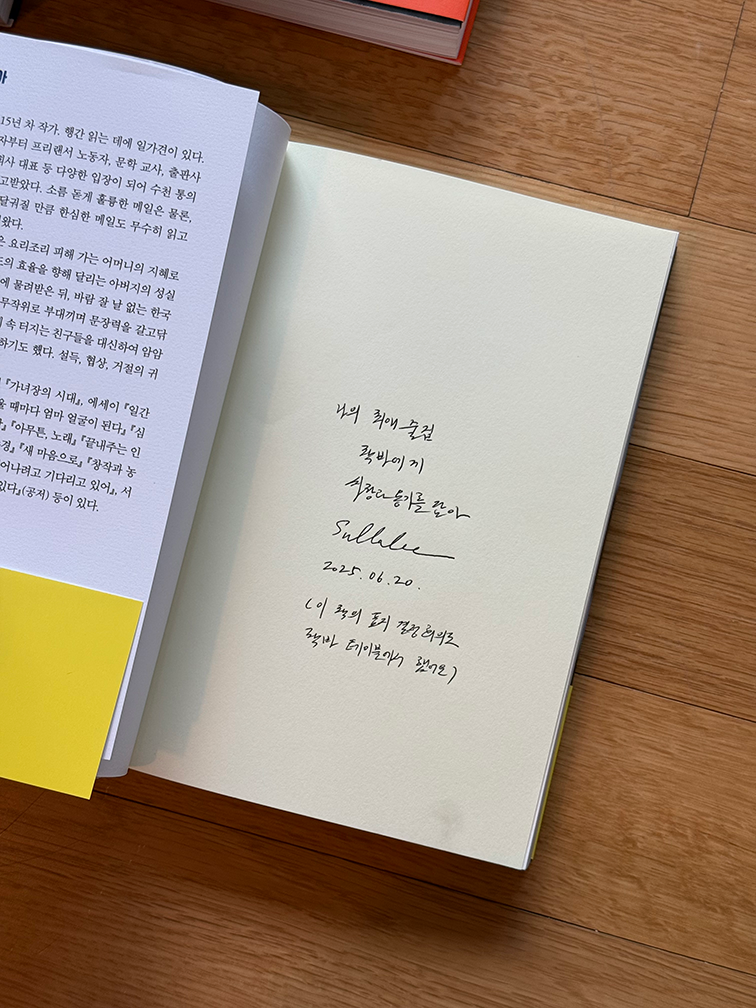 15년 차 작가. 행간 읽는 데에 일가견이 있다.
자부터 프리랜서 노동자, 문학 교사, 출판사
회사 대표 등 다양한 입장이 되어 수천 통의
고받았다. 소름 돋게 훌륭한 메일은 물론,
달궈질 만큼 한심한 메일도 무수히 읽고
왔다.
은 요리조리 피해 가는 어머니의 지혜로
도의 효율을 향해 달리는 아버지의 성실
에 물려받은 뒤, 바람 잘 날 없는 한국
무작위로 부대끼며 문장력을 갈고닦
속 터지는 친구들을 대신하여 암암
하기도 했다. 설득, 협상, 거절의 귀
『가녀장의 시대』, 에세이 『일간
울 때마다 엄마 얼굴이 된다』 『심
』 『아무튼, 노래』 『끝내주는 인
경』 『새 마음으로』 『창작과 농
어나려고 기다리고 있어』, 서
있다』(공저) 등이 있다.
나의 최애 술집
책바에게
용기를 담아
2025. 06. 20.
(이 책의 표지 결정 회의도
책바 테이블에서 했어요)